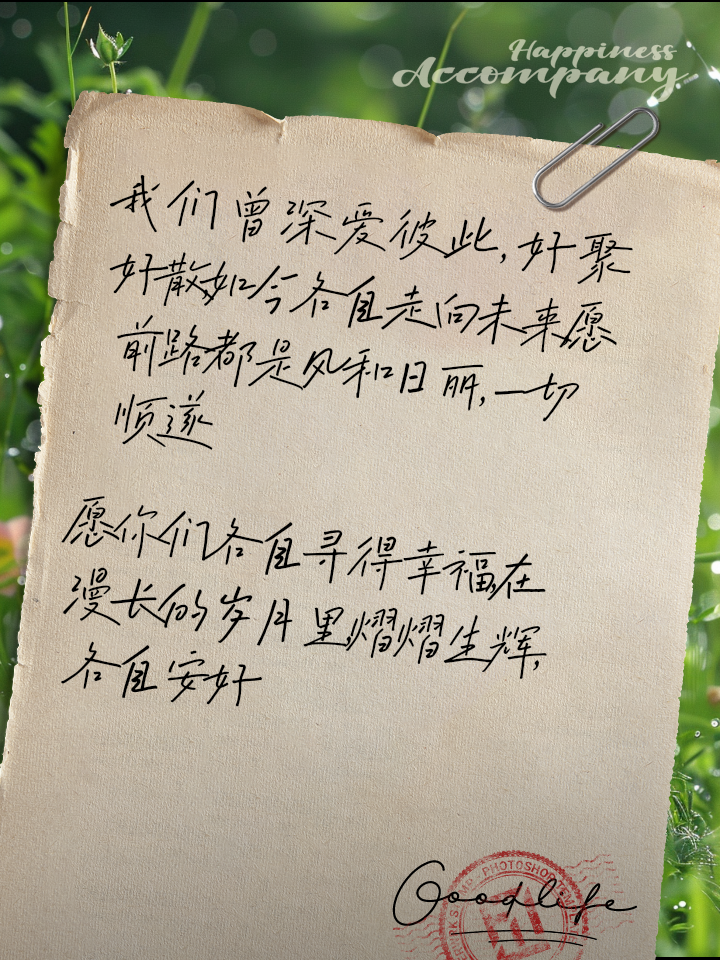 Happiness
Accompany
我们曾深爱彼此,好聚
好散,如今各自走向未来,愿
前路都是风和日丽,一切
顺遂
愿你们各自寻得幸福,在
漫长的岁月里,熠熠生辉,
各自安好
PHOTOSHOP
Goodlife